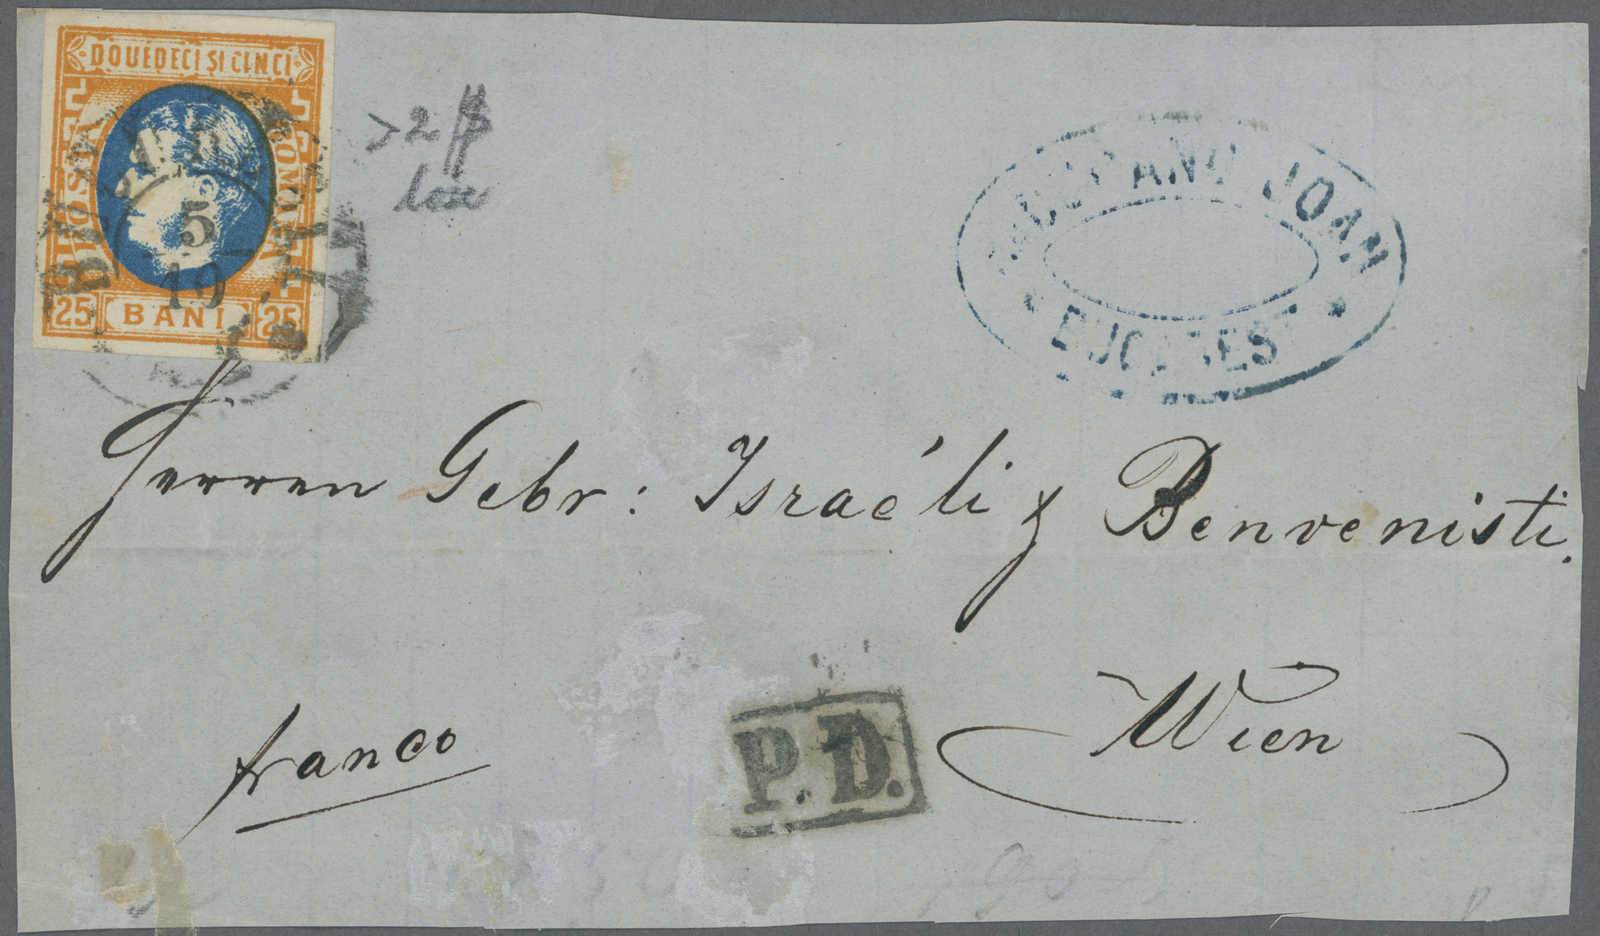 DOUEDECI ȘI CINCI
POSTA
ROMANA
25 BANI 25
5
19
JOAN
BUCAREST
Herren Gebr: Israéli & Benvenisti.
franco
P.D.
Wien